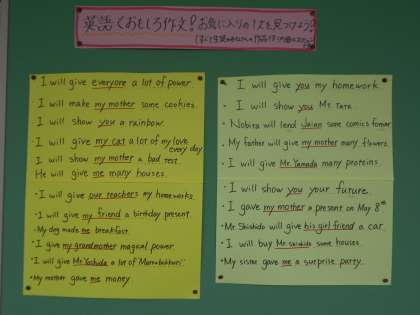 英語 くおもしろ作文! お気に入りの1文を見つけよう!
I will give everyone a lot of power.
I will make my mother some cookies.
I will show you a rainbow.
I will give my cat a lot of my love every day
I will show my mother a bad test.
He will give me many houses.
• I will give our teachers my homeworks.
• I will give my friend a birthday present.
• My dog made me breakfast.
• I give my grandmother magical power.
• I will give Mr. Yoshida a lot of
• My mother gave me money.
• I will give you my homework.
• I will show you Mr. Tata.
• Nobita will lend Jaian some comics
• My father will give my mother many flowers.
• I will give Mr. Yamada many proteins.
• I will show you your future.
• I gave my mother a present on May 8th
• Mr. Shishido will give his girl friend a car.
• I will buy Mr. Shishido some houses.
• My sister gave me a surprise party.